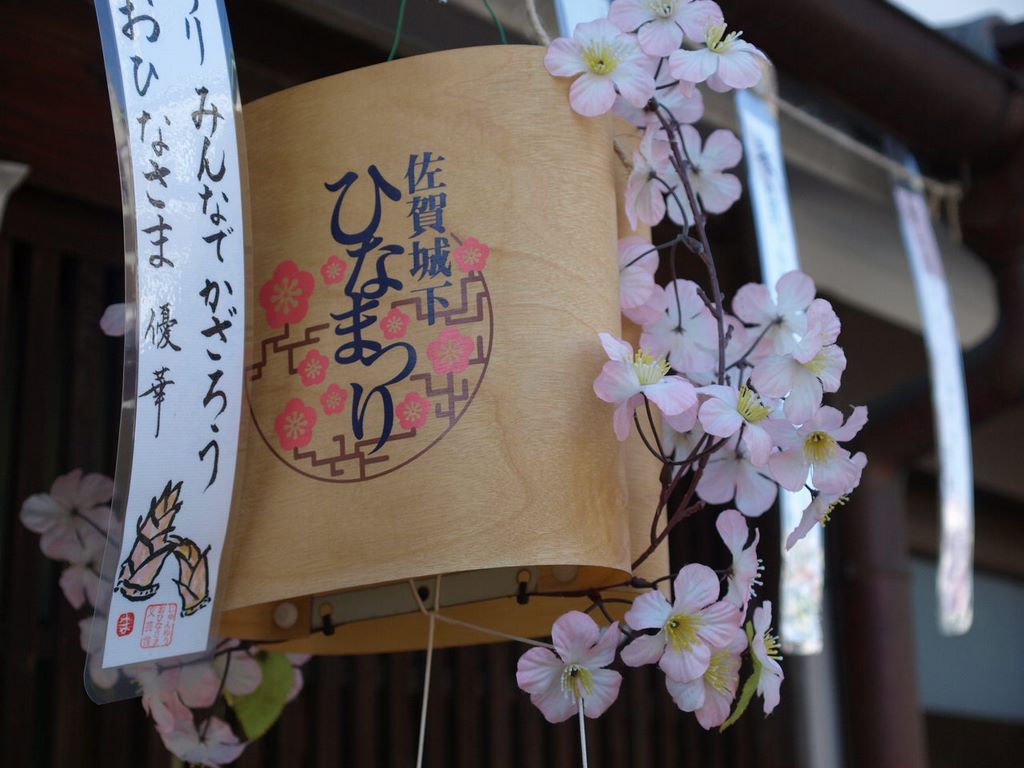 佐賀城下
ひなまつり
みんなでかざろう
おひなさま 優華